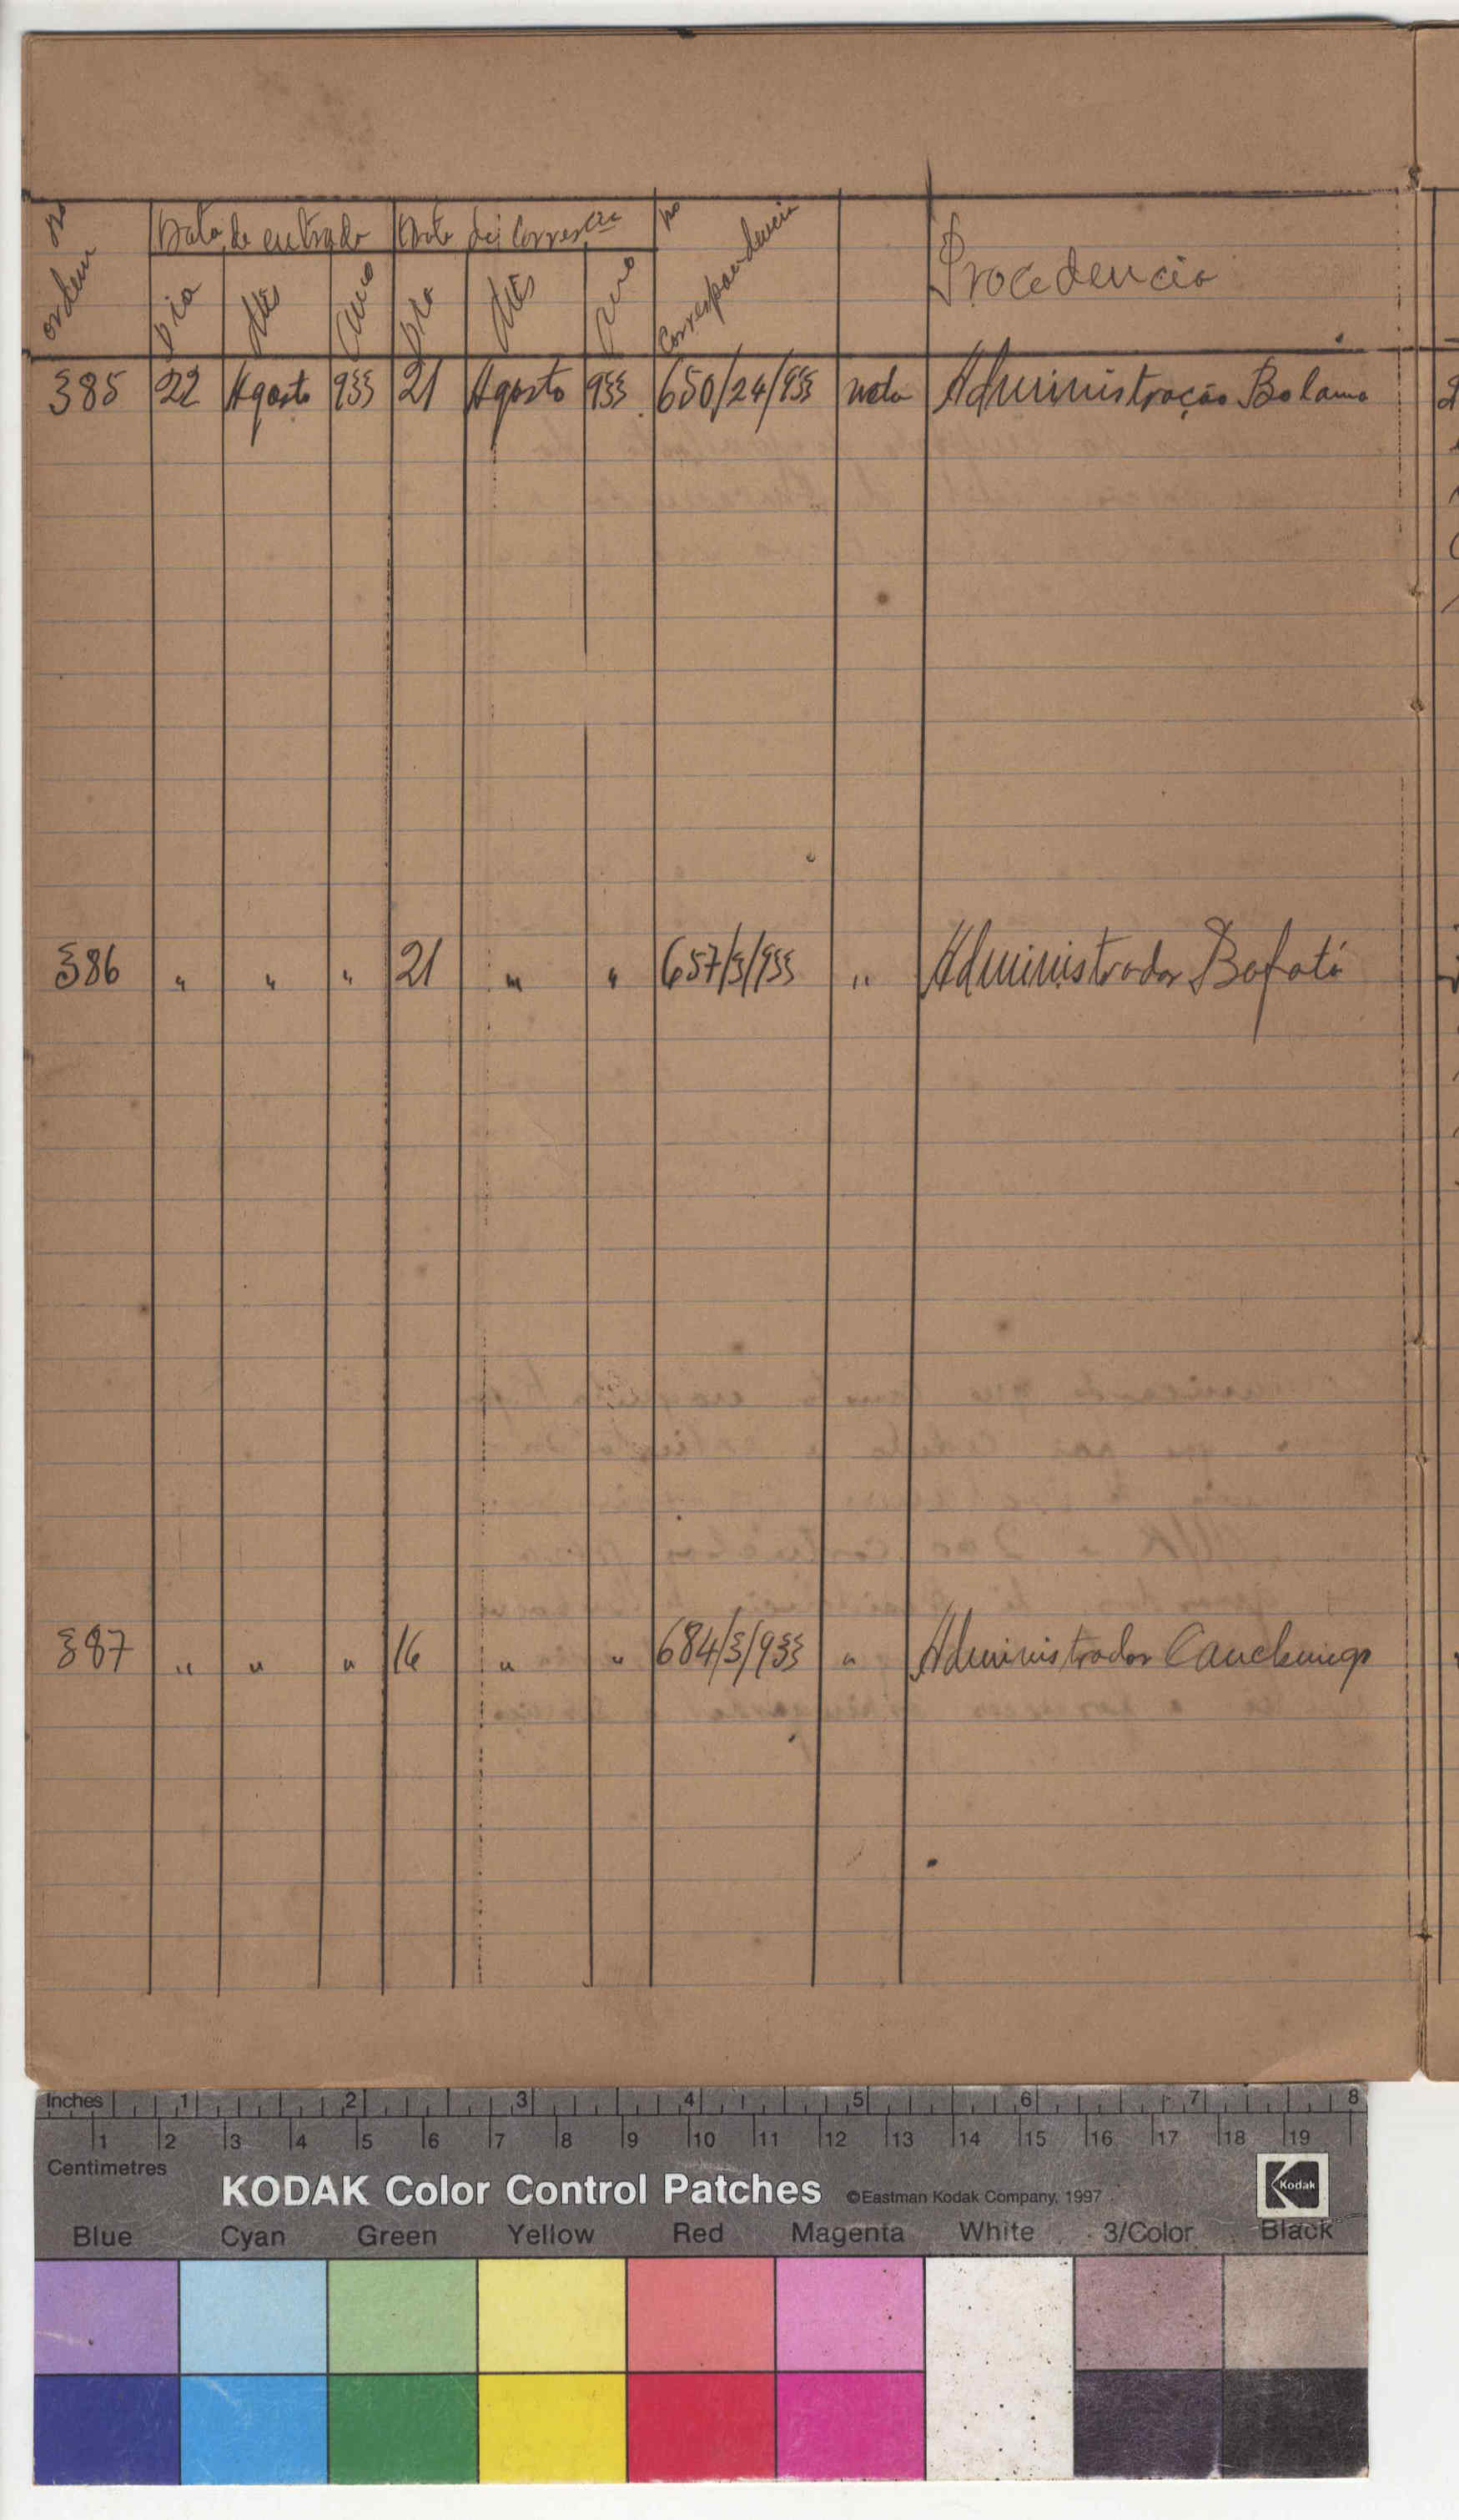 no ordem Data de entrada Data da Correscia no Correspondencia Procedencia
Dia Mês Ano Dia Mês Ano
385 22 Agosto 933 21 Agosto 933 650/24/933 nota Administração Bolama
386 " " " 21 " " 657/3/933 " Administrador Bafatá
387 " " " 16 " " 684/3/933 " Administrador Canchungo
Inches 1 2 3 4 5 6 7 8
1 2 3 4 5 6 7 8 9 10 11 12 13 14 15 16 17 18 19
Centimetres
KODAK Color Control Patches ©Eastman Kodak Company, 1997 Kodak
Blue Cyan Green Yellow Red Magenta White 3/Color Black